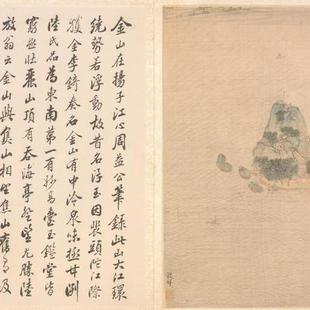 金山在揚子江心周益公筆錄此山大江環
繞勢若浮動故昔名浮玉因裴頭陀江際
獲金李錡奏名金山有中泠泉味極甘冽
陸氏品為東南第一有妙高臺玉鑑堂皆
窮極壯麗山頂有吞海亭登望尤勝陸
放翁云金山與焦山相望焦山舊有吸